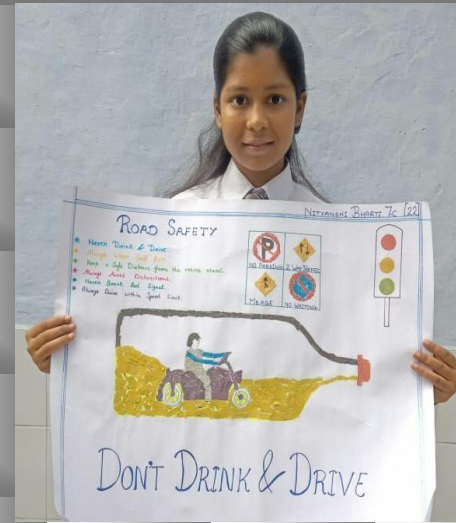 NITYANSHI BHARTI 7C [22]
ROAD SAFETY
Never Drink & Drive.
Always wear Seat Belt.
Keep a Safe Distance from the vehicle ahead.
Always Avoid Distractions.
Never Break Red Signal.
Always Drive within Speed Limit.
P
NO PARKING
2 WAY TRAFFIC
MERGE
NO WAITING
DON'T DRINK & DRIVE